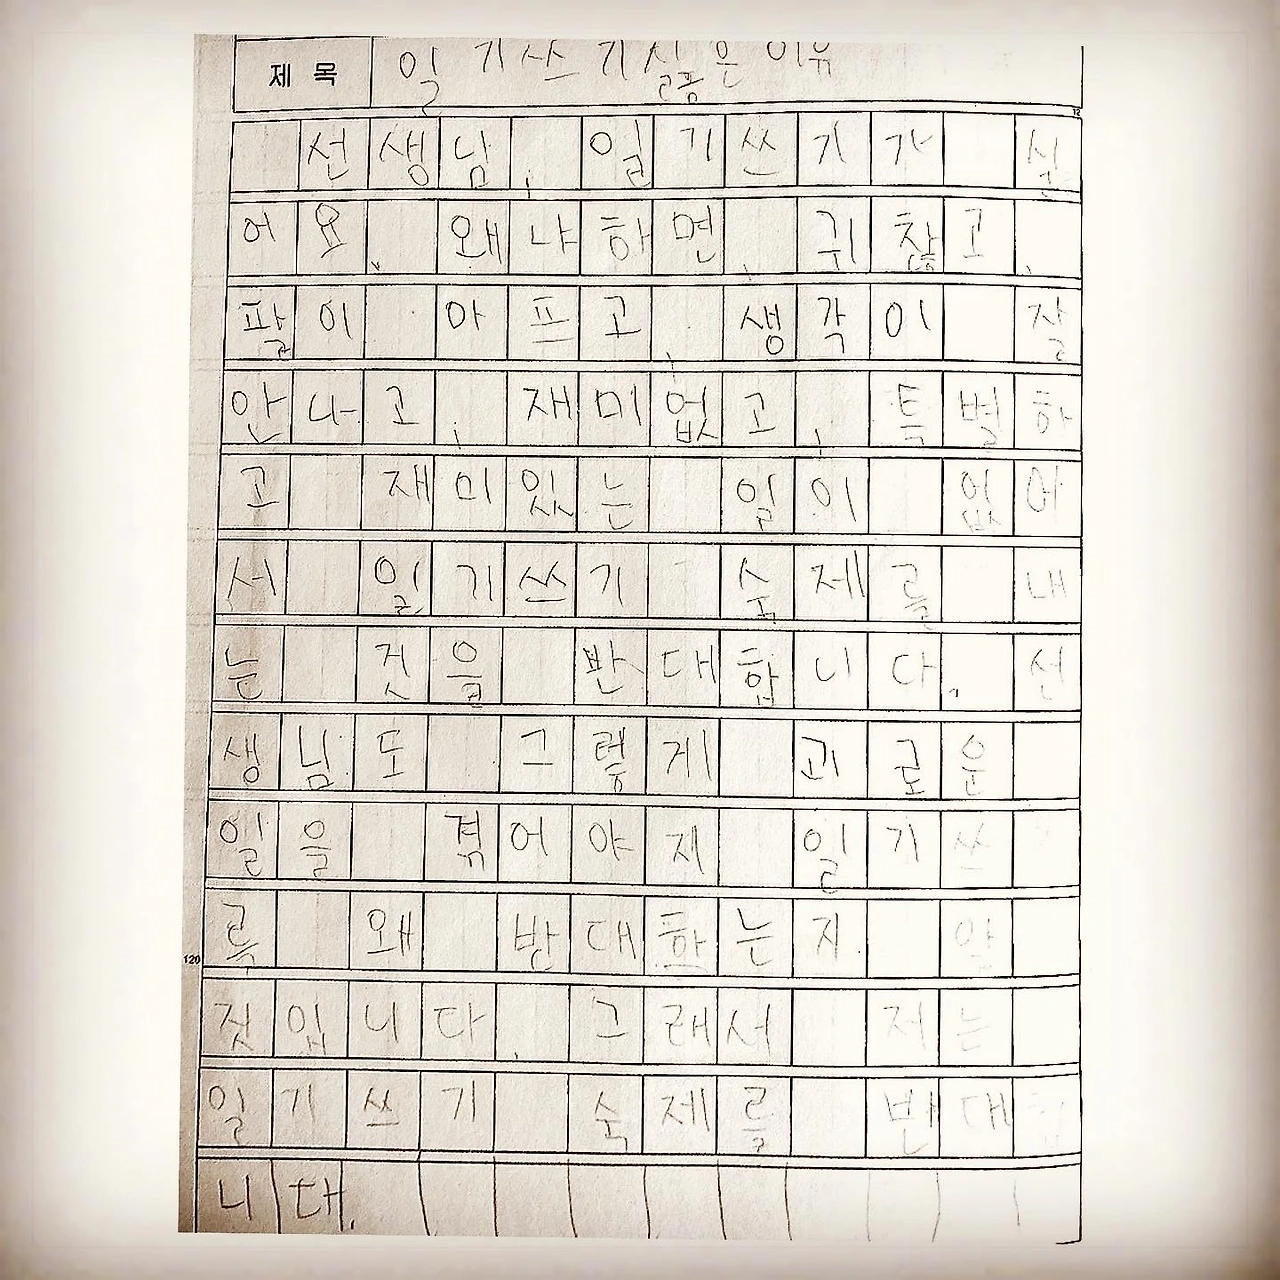 제 목 일기쓰기싫은 이유
선생님, 일기쓰기가 싫
어요. 왜냐하면, 귀찮고,
팔이 아프고, 생각이 잘
안나고, 재미없고, 특별하
고 재미있는 일이 없어
서 일기쓰기 숙제를 내
는 것을 반대합니다. 선
생님도 그렇게 괴로운
일을 겪어야지 일기쓰
를 왜 반대하는지 알
것입니다. 그래서 저는
120
일기쓰기 숙제를 반대합
니다.